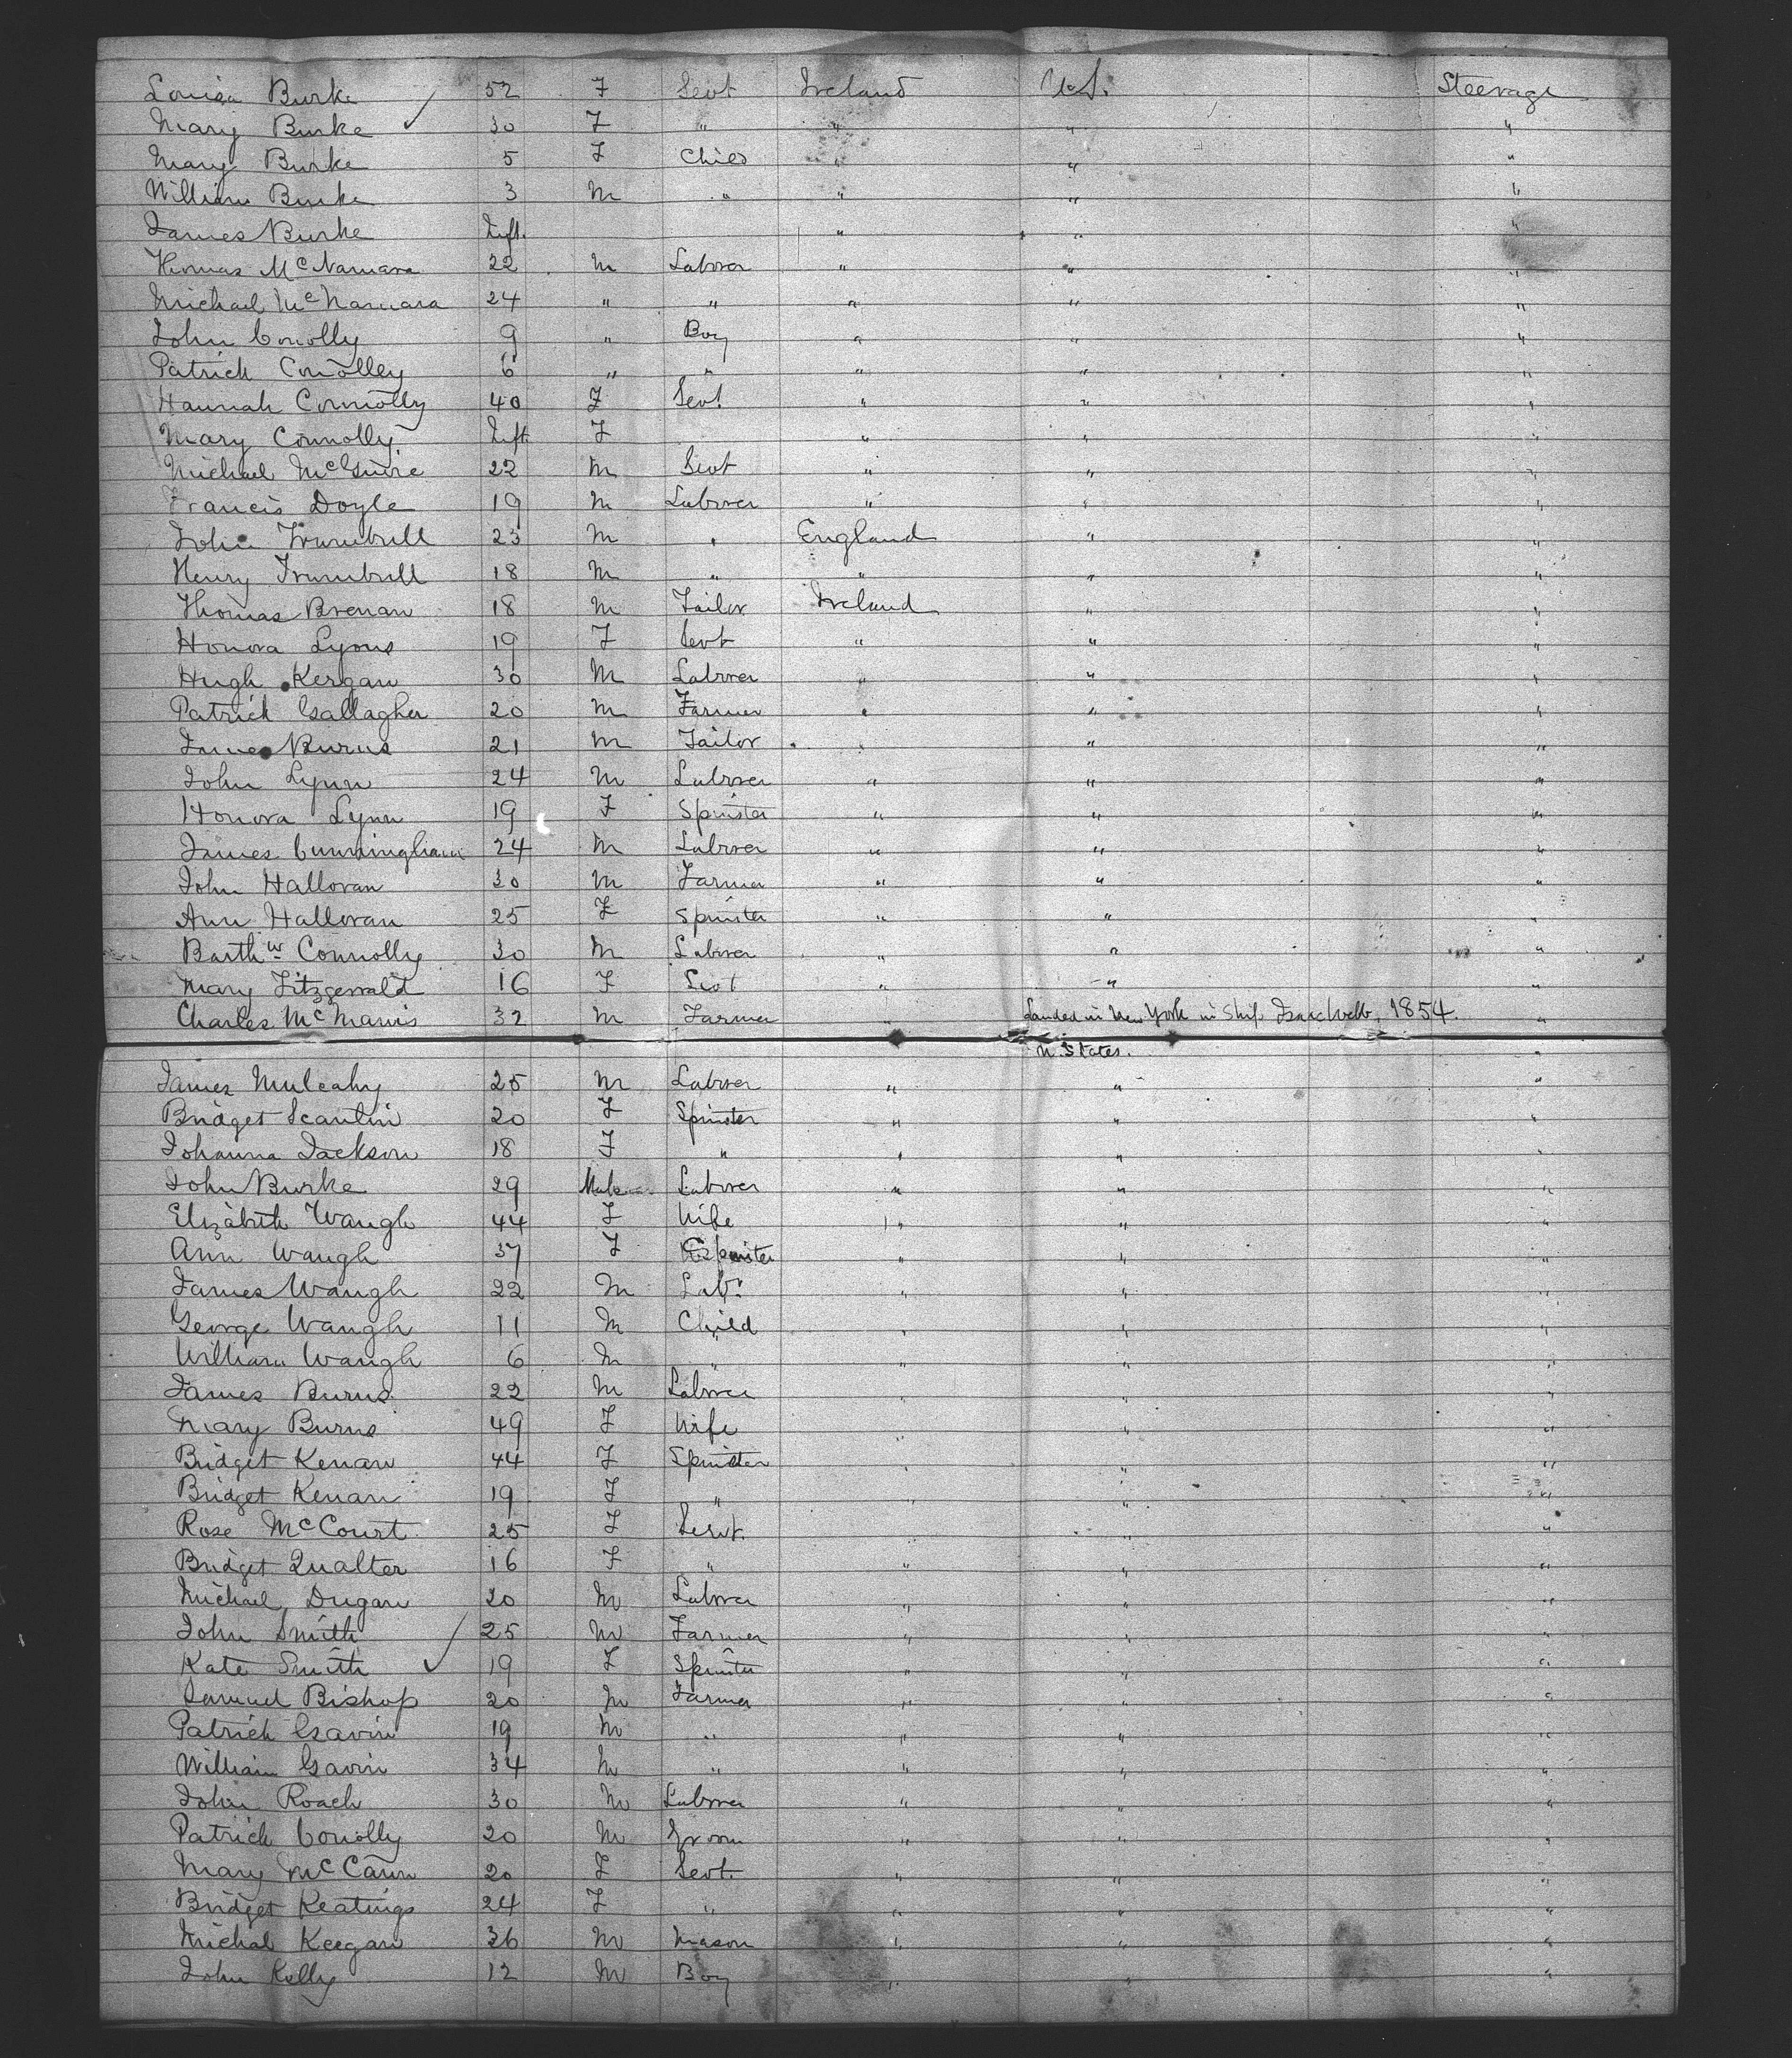 Louisa Burke 52 F Servt Ireland U.S. Steerage
Mary Burke 30 F " " " "
Mary Burke 5 F Child " " "
William Burke 3 M " " " "
James Burke Inft. " " "
Thomas McNamara 22 M Labrer " " "
Michael McNamara 24 " " " " "
John Conolly 9 " Boy " " "
Patrick Conolley 6 " " " " "
Hannah Connolly 40 F Servt " " "
Mary Connolly Inft. F " " "
Michael McGuire 22 M Servt " " "
Francis Doyle 19 M Labrer " " "
John Trumbull 23 M " England " "
Henry Trumbull 18 M " " " "
Thomas Brenan 18 M Tailor Ireland " "
Honora Lyons 19 F Servt " " "
Hugh Kergan 30 M Labrer " " "
Patrick Gallagher 20 M Farmer " " "
James Burns 21 M Tailor " " "
John Lynn 24 M Labrer " " "
Honora Lynn 19 F Spinster " " "
James Cunningham 24 M Labrer " " "
John Halloran 30 M Farmer " " "
Ann Halloran 25 F Spinster " " "
Barthw Connolly 30 M Labrer " " "
Mary Fitzgerrald 16 F Servt " " "
Charles McManis 32 M Farmer " Landed in New York in Ship Isaac Webb, 1854. "
U. States. "
James Mulcahy 25 M Labrer " " "
Bridget Scanlin 20 F Spinster " " "
Johanna Jackson 18 F " " " "
John Burke 29 Male Labrer " " "
Elizabeth Waugh 44 F Wife " " "
Ann Waugh 37 F Spinster " " "
James Waugh 22 M Labr. " " "
George Waugh 11 M Child " " "
William Waugh 6 M " " " "
James Burns 22 M Labrer " " "
Mary Burns 49 F Wife " " "
Bridget Kenan 44 F Spinster " " "
Bridget Kenan 19 F " " " "
Rose McCourt 25 F Servt. " " "
Bridget Qualter 16 F " " " "
Michael Dugan 20 M Labrer " " "
John Smith 25 M Farmer " " "
Kate Smith 19 F Spinster " " "
Samuel Bishop 20 M Farmer " " "
Patrick Gavin 19 M " " " "
William Gavin 34 M " " " "
John Roach 30 M Labrer " " "
Patrick Conolly 20 M Groom " " "
Mary McCann 20 F Servt. " " "
Bridget Keatings 24 F " " " "
Michal Keegan 36 M Mason " " "
John Kelly 12 M Boy " " "